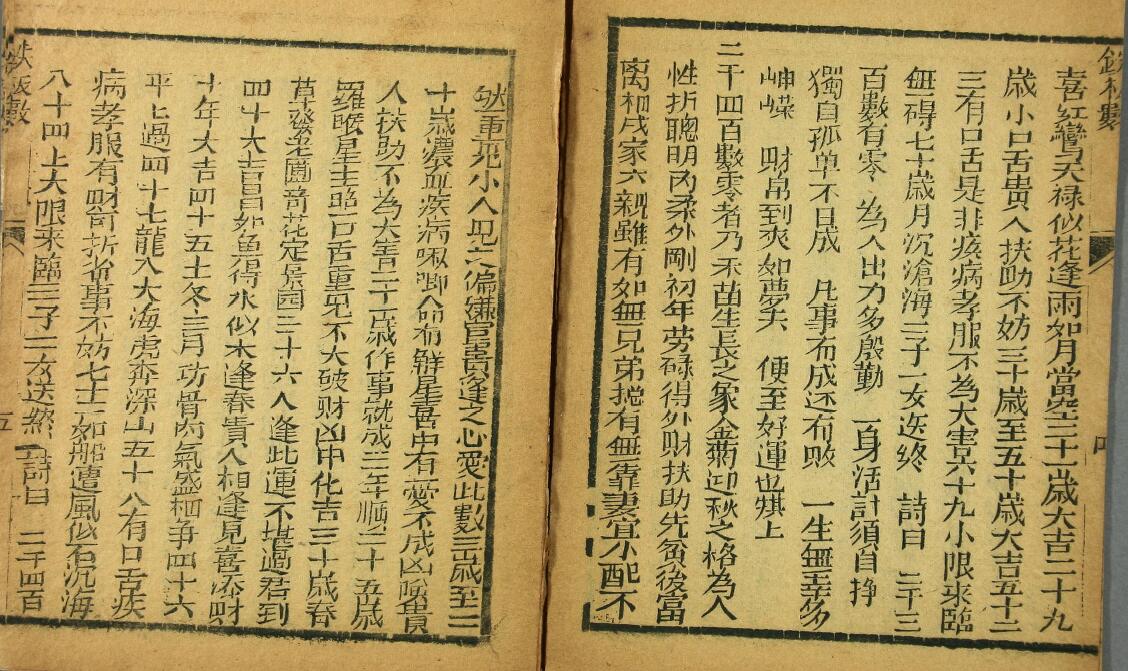 喜紅鸞天禄似花逢雨如月當空三十一歲大吉二十九
歲小口舌貴人扶助不妨三十歲至五十歲大吉五十二
三有口舌是非疾病孝服不為大害六十九小限來臨
無碍七十歲月沉滄海三子一女送終 詩曰 二千三
百數有零 為人出力多殷勤 一身活計須自挣
獨自孤单不日成 凡事布成还有敗 一生無幸多
崢嶸 財帛到来如夢 便至好運也
二千四百數零者乃禾苗生長之象金菊迎秋之格為人
性折聰明内柔外剛初年劳禄得外財扶助先貧後富
离祖成家六親雖有如無兄弟総有無靠妻宜小配不
然重犯小人 偏嫌官貴逢之心愛此數三歲至二
十歲濃血疾病唧唧八命有觧星喜中有憂不成凶陰貴
人扶助不為大害二十歲作事就成三年順三十五歲
羅睺星主照口舌重見不大破财凶中化吉三十歲春
草發老園奇花定景園三十六人逢此運不堪過君到
四十大吉昌如魚得水似木逢春貴人相逢見喜添財
十年大吉四十五土冬三月功骨肉氣盛相争四十六
平上過四十七龍入大海虎奔深山五十八有口舌疾
病孝服有財可折省事不妨七十二如船遭風似石沉海
八十四上大限来臨三子二女送終 詩曰 二千四百